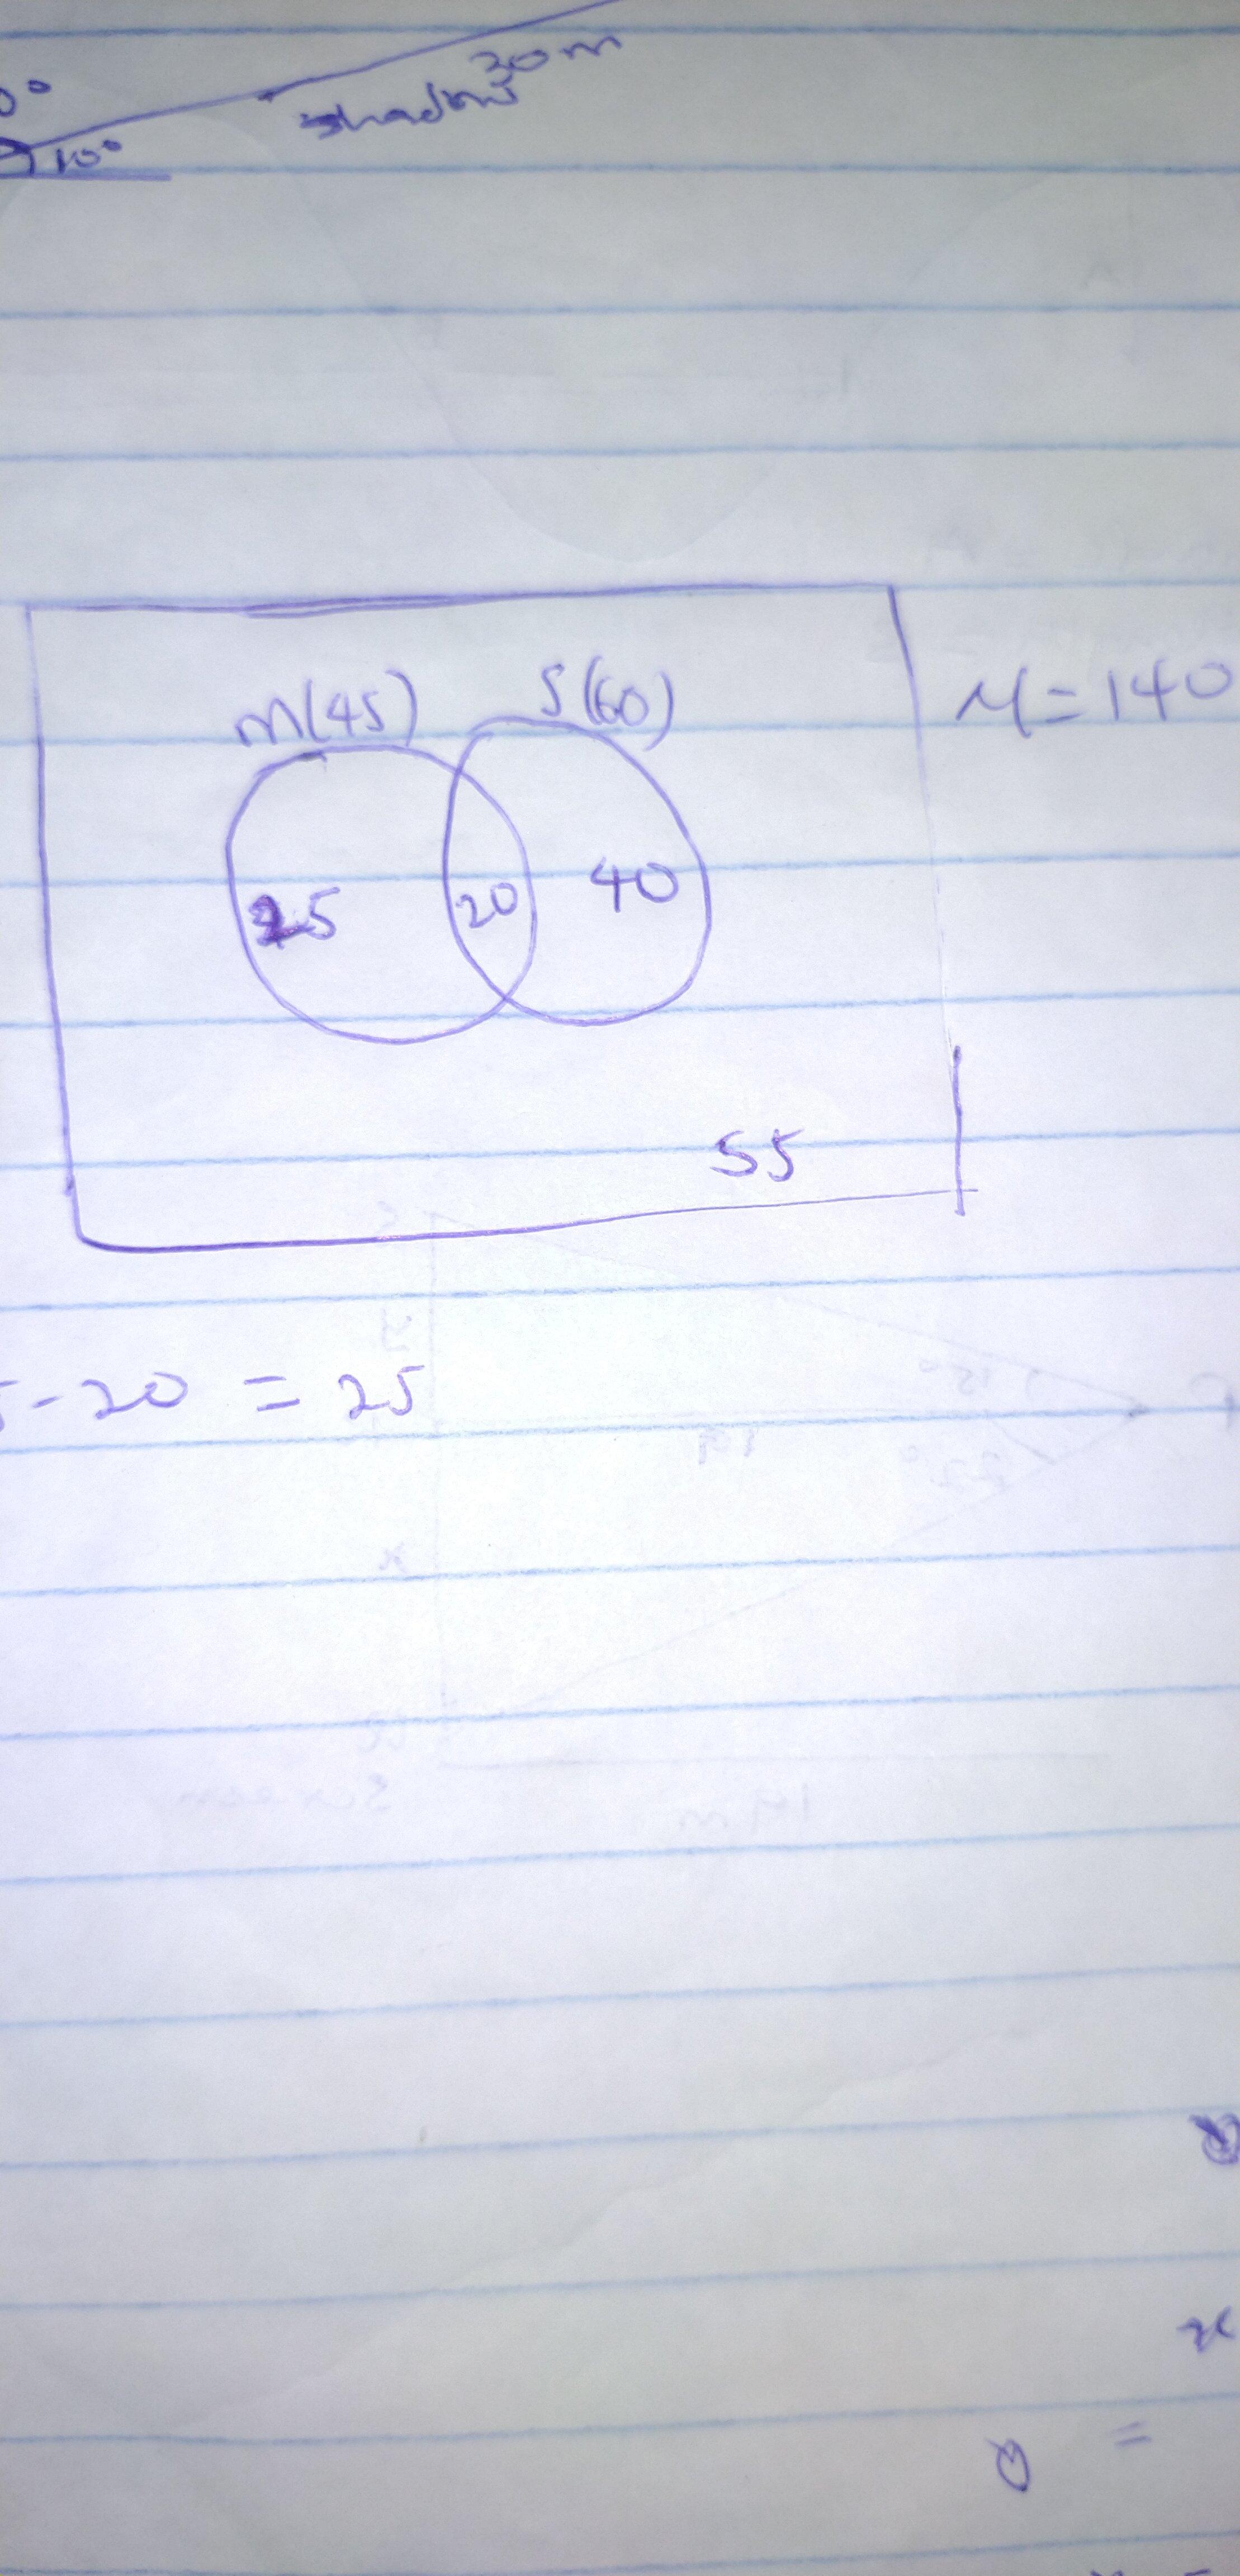 30m
shadow
10°
m(45) S(60) μ=140
25 20 40
55
5-20 = 25
x
=